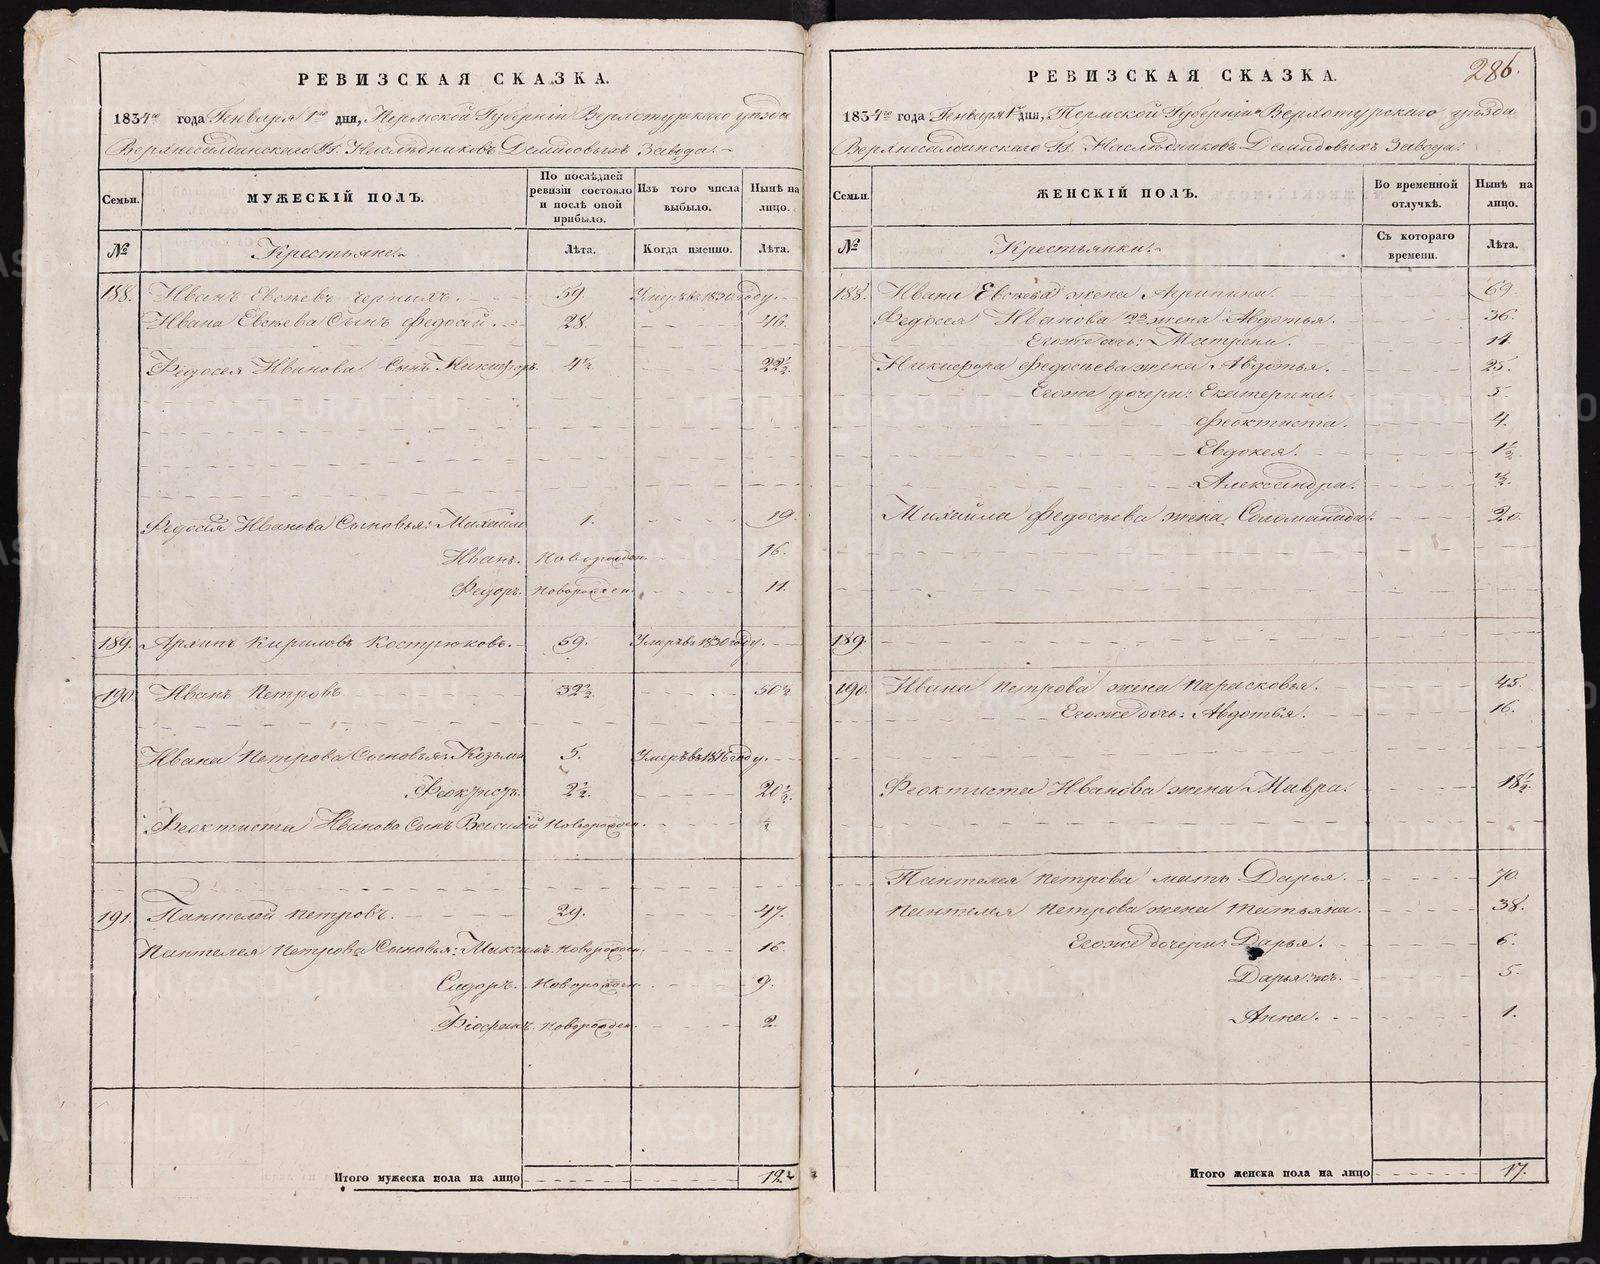 РЕВИЗСКАЯ СКАЗКА.
1834го года Генваря 1го дня, Пермской Губерніи Верхотурскаго уѣзда
Верхнесалдинскаго Гг. Наслѣдниковъ Демидовыхъ Завода.
Семьи. МУЖЕСКІЙ ПОЛЪ. По послѣдней ревизіи состояло и послѣ оной прибыло. Изъ того числа выбыло. Нынѣ на лицо.
№ Крестьяне. Лѣта. Когда именно. Лѣта.
188. Иванъ Евсѣевъ Черныхъ. 59. Умеръ въ 1830 году.
Ивана Евсѣева Сынъ Федосей. 28. 46.
Федосея Иванова Сынъ Никифоръ 4½ 22½.
Федосѣя Иванова Сыновья: Михайло 1. 19.
Иванъ. Новорожден. 16.
Федоръ. Новорожден. 11.
189. Архипъ Кириловъ Кострюковъ. 59. Умеръ въ 1830 году.
190. Иванъ Петровъ 32½. 50½
Ивана Петрова Сыновья: Козьма 5. Умеръ въ 1816 году.
Феоктистъ. 2½. 20½.
Феоктиста Иванова Сынъ Василий Новорожден. ½
191. Пантелей Петровъ. 29. 47.
Пантелея Петрова Сыновья: Максимъ Новорожден. 16.
Сидоръ. Новорожден. 9.
Новорожден. 2.
Итого мужеска пола на лицо 12.
286.
РЕВИЗСКАЯ СКАЗКА.
1834го года Генваря 1го дня, Пермской Губерніи Верхотурскаго уѣзда
Верхнесалдинскаго Гг. Наслѣдниковъ Демидовыхъ Завода:
Семьи. ЖЕНСКІЙ ПОЛЪ. Во временной отлучкѣ. Нынѣ на лицо.
№ Крестьянки. Съ котораго времени. Лѣта.
188. Ивана Евсѣева жена Агрипина. 69
Федосея Иванова 2я жена Авдотья. 36.
Егоже дочь: Матрена. 11.
Никифора Федосѣева жена Авдотья. 25.
Егоже дочери: Екатерина. 5.
Феоктиста. 4.
Евдокея. 1½.
Александра. ½.
Михайла Федосѣева жена Соломанида. 20.
189.
190. Ивана Петрова жена Парасковья. 45.
Егоже дочь: Авдотья. 16.
Феоктиста Иванова жена Мавра. 18½
Пантелея Петрова мать Дарья. 70.
Пантелея Петрова жена Татьяна. 38.
Егоже дочери: Дарья. 6.
Дарья ж. 5.
Анна. 1.
Итого женска пола на лицо 17.
METRIKI.GASO-URAL.RU